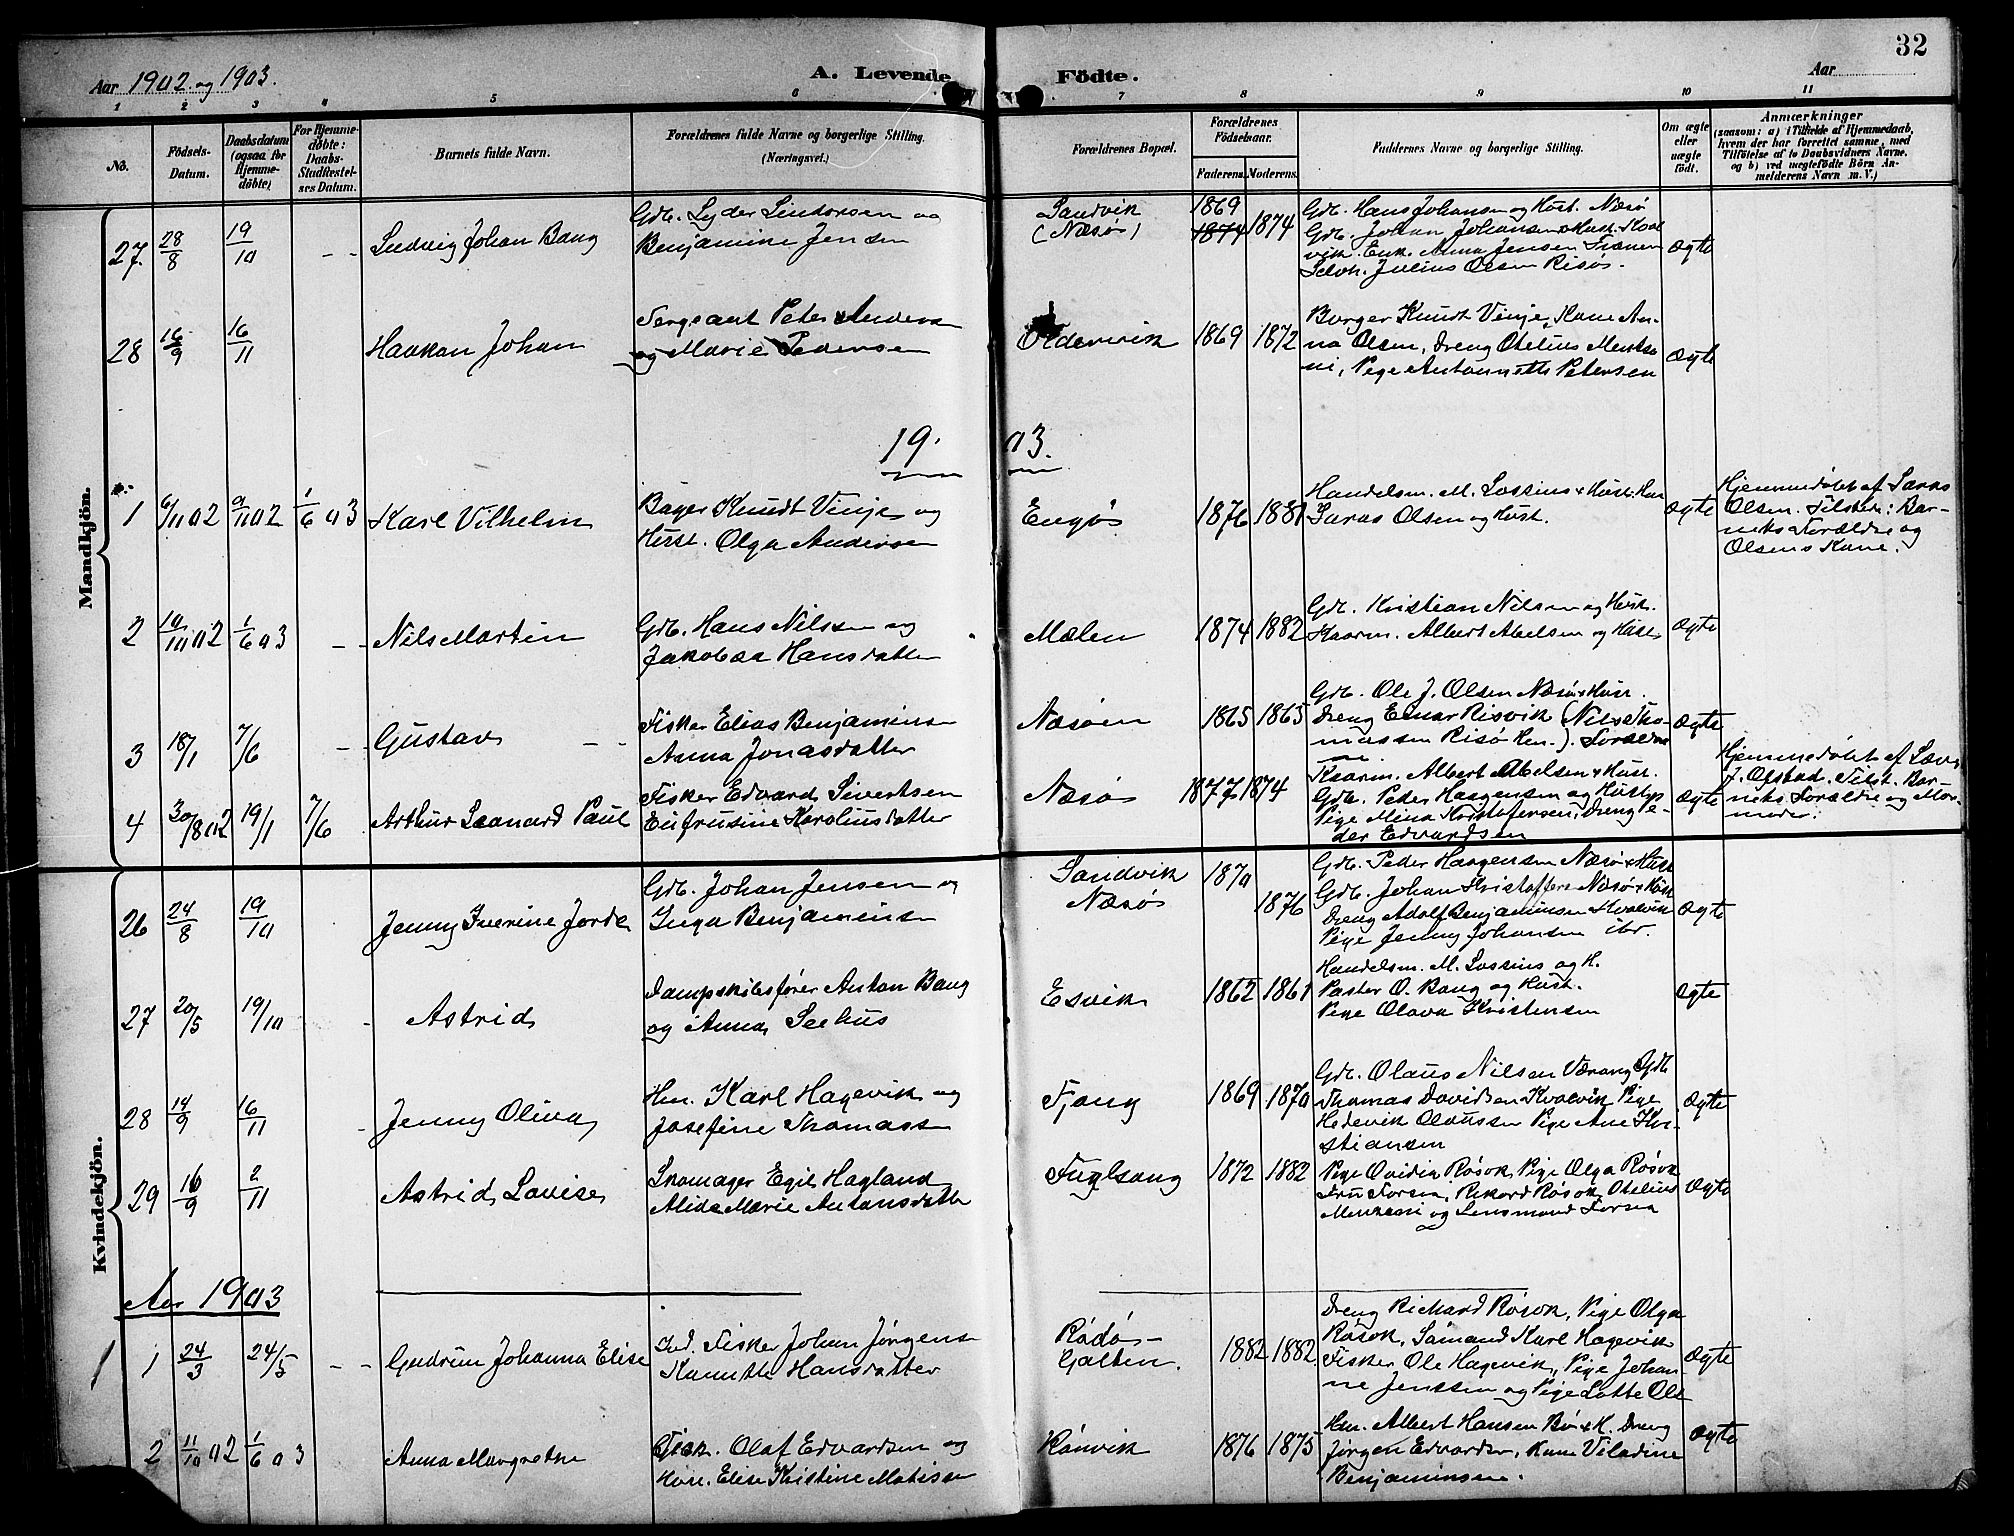 32
Aar 1902 og 1903.
A. Levende Födte.
Aar
1 2 3 4 5 6 7 8 9 10 11
No.
Födsels-Datum.
Daabsdatum (ogsaa for Hjemmedöbte)
For Hjemmedöbte: Daabs-Stadfæstelses Datum.
Barnets fulde Navn.
Forældrenes fulde Navne og borgerlige Stilling. (Næringsvei.)
Forældrenes Bopæl.
Forældrenes Födselsaar.
Faderens. Moderens.
Faddernes Navne og borgerlige Stilling.
Om ægte eller uægte födt.
Anmærkninger
(saasom: a) i Tilfælde af Hjemmedaab, hvem der har forrettet samme, med Tilföielse af to Daabsvidners Navne, og b) ved uægtefödte Börn Anmelderens Navn m. V.)
Mandkjön.
27. 28/8 19/10 - - Ludvig Johan Bang
Gdb. Lyder Lindorsen og
Benjamine Jensen
Sandvik
(Næsø)
1869
1874 1874
Gdb. Hans Johansen og Hust. Næsø
Gdb. Johan Johansen & Hust. Kval
vik. Enk. Anna Jensen Tranen
Selvh. Julius Olsen Risø.
ægte
28 16/9 16/11 Haakon Johan
Sergeant Peter Anders
og Marie Pedersen
Oldervik 1869 1872
Borger Knudt Vinje, Kone An-
na Olsen, Dreng Otelius Mentzo
ni, Pige Antonneth Petersen
ægte
19. 03.
1 6/11 02 9/11 02 1/6 03 Karl Vilhelm
Bager Knudt Vinje og
Hust. Olga Andersen
Engø 1876 1881
Handelsm. M. Lossius & Hust.
Laras Olsen og Hust.
ægte
Hjemmedøbt af Laras
Olsen. Tilstede: Bar-
nets Forældre og
Olsens Kone.
2 10/10 02 1/6 03 - - Nils Martin
Gdb. Hans Nilsen og
Jakobea Hansdatter
Mælen 1874 1882
Gdb. Kristian Nilsen og Hust.
Kaarm. Albert Abelsen og Hust.
ægte
3 18/1 7/6 - - Gustav - -
Fisker Elias Benjaminsen
Anna Jonasdatter
Næsøen 1865 1865
Gdb. Ole J. Olsen Næsø & Hust.
Dreng Einar Risvik (Nils Tho-
massen Risø Hm.). Forældre
ne
ægte
4 30/8 02 19/1 7/6 Arthur Leonard Paul
Fisker Edvard Sivertsen
Eufrusine Karoliusdatter
Næsø 1877 1874
Kaarm. Albert Abelsen & Hust.
Gdb. Peter Haagensen og Hust.
Pige Mina Kristofersen, Dreng Pe-
der Edvardsen
ægte
Hjemmedøbt af
J. Olstad. Tilst. Bar-
nets Forældre og Mor-
moder.
Kvindekjön.
26 24/8 19/10 Jenny Iverine Jorde
Gdb. Johan Jensen og
Inga Benjaminsen
Sandvik
Næsø
1870 1876
Gdb. Peder Haagensen Næsø & Hust
Gdb. Johan Kristoffers Næsø & Hust
Dreng Adolf Benjaminsen Kvalvik
Pige Jenny Johansen ibr.
ægte
27 20/5 19/10 - Astrid
Dampskibsfører Anton Bang
og Anna Seehus
Esvik 1862 1861
Handelsm. M. Lossius og H.
Pastor O. Bang og Hust.
Pige Olava Kristensen
ægte
28 14/9 16/11 - Jenny Oliva
Hm. Karl Hagevik og
Josefine Thomass
Tjong 1869 1870
Gdb. Olaus Nilsen Værang Gdb
Thomas Davidsen Kvalvik Pige
Hedevik Olaussen Pige Ane Kri-
stiansen
ægte
29 16/9 2/11 - Astrid Lovise
Skomager Egil Hagland
Alida Marie Antonsdatter
Fuglsang 1872 1882
Pige Ovidia Røsok, Pige Olga Røsok
Fru Forsea, Rikard Røsok, Otelius
Mentzoni og Lensmand Forsea
ægte
Aar 1903
1 1 24/3 24/5 - - Gudrun Johanna Elise
Ind. Fisker Johan Jørgens
Kanutte Hansdatter
Rødø-
Galten.
1882 1882
Dreng Richard Røsok, Pige Olga
Røsok, Sømand Karl Hagevik
Fisker Ole Hagevik, Pige Johan
ne Jenssen og Pige Lotte Ols
ægte
2 11/10 02 1/6 03 Anna Margrethe
Fisk. Olaf Edvardsen og
Hust. Elise Kristine Matisse
Rønvik 1876 1875
Hm. Albert Hansen Bø & H. Dreng
Jørgen Edvardsen, Kone Viladine
Benjaminsen.
ægte